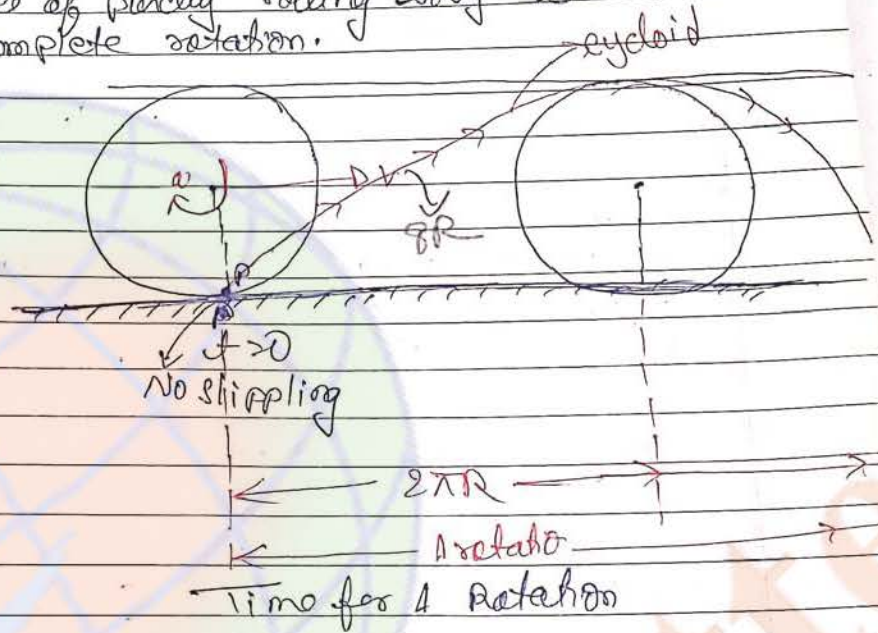 of rolling
complete rotation.
cycloid
ω
8R
P
t=0
No slippling
2πR
1 rotatio
Time for 1 Rotation